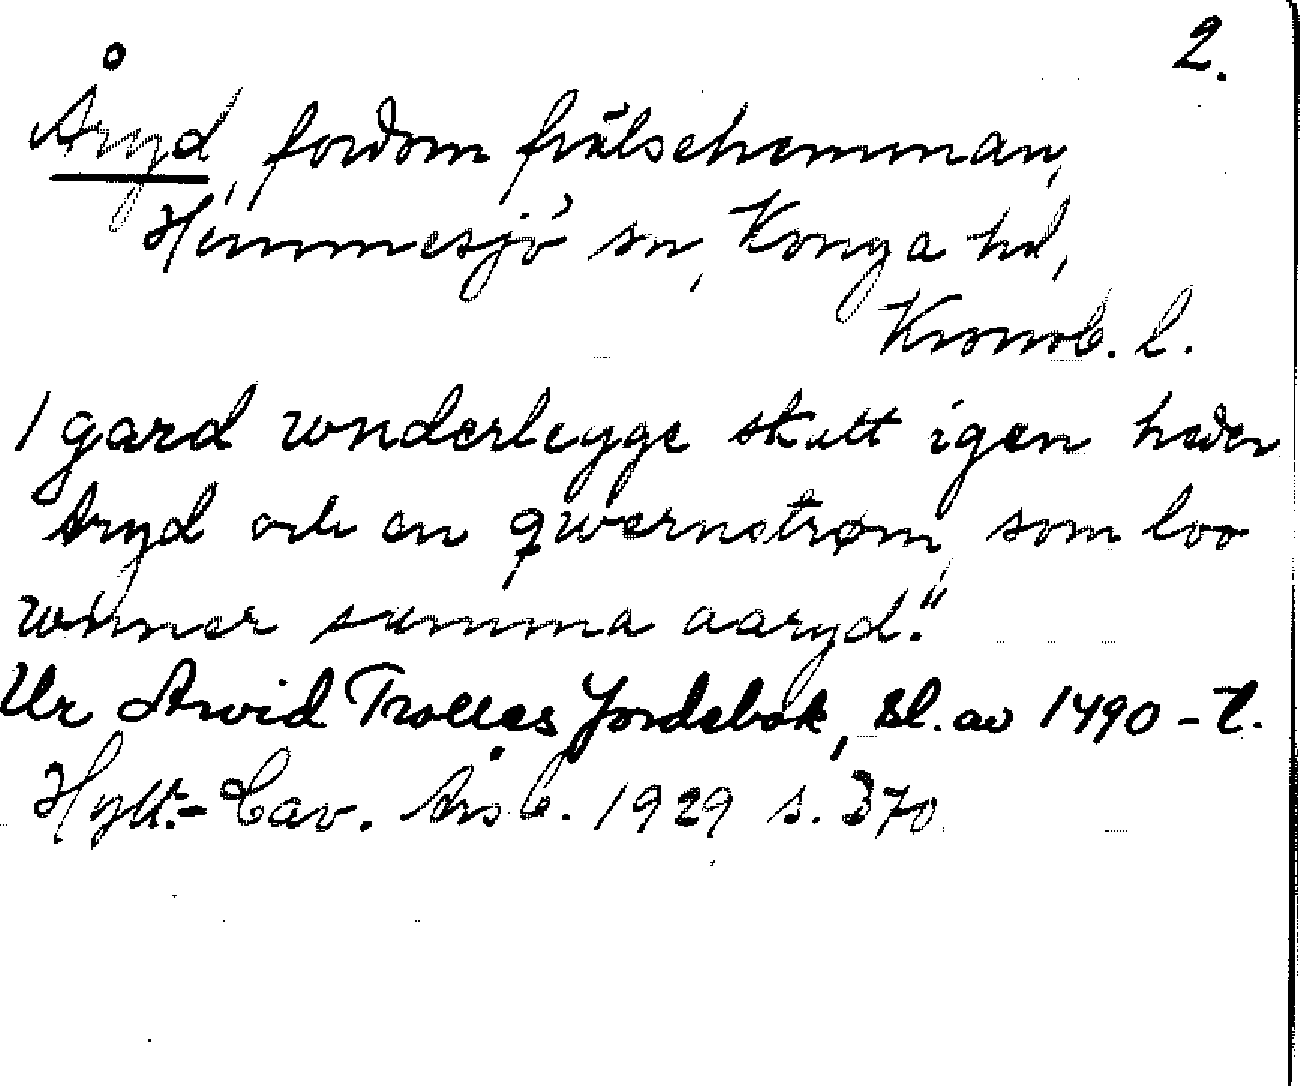 2.
Åryd, fordom frälsehemman,
Hemmesjö sn, Konga hd,
Kronob. l.
1 gard wnderleygge skatt igen heder
Aryd och en qwernstrøm, som loo
winner summa aaryd."
Ur Arvid Trolles Jordebok, sl. av 1490-t.
Hylt.-Cav. Årsb. 1929 s. 370